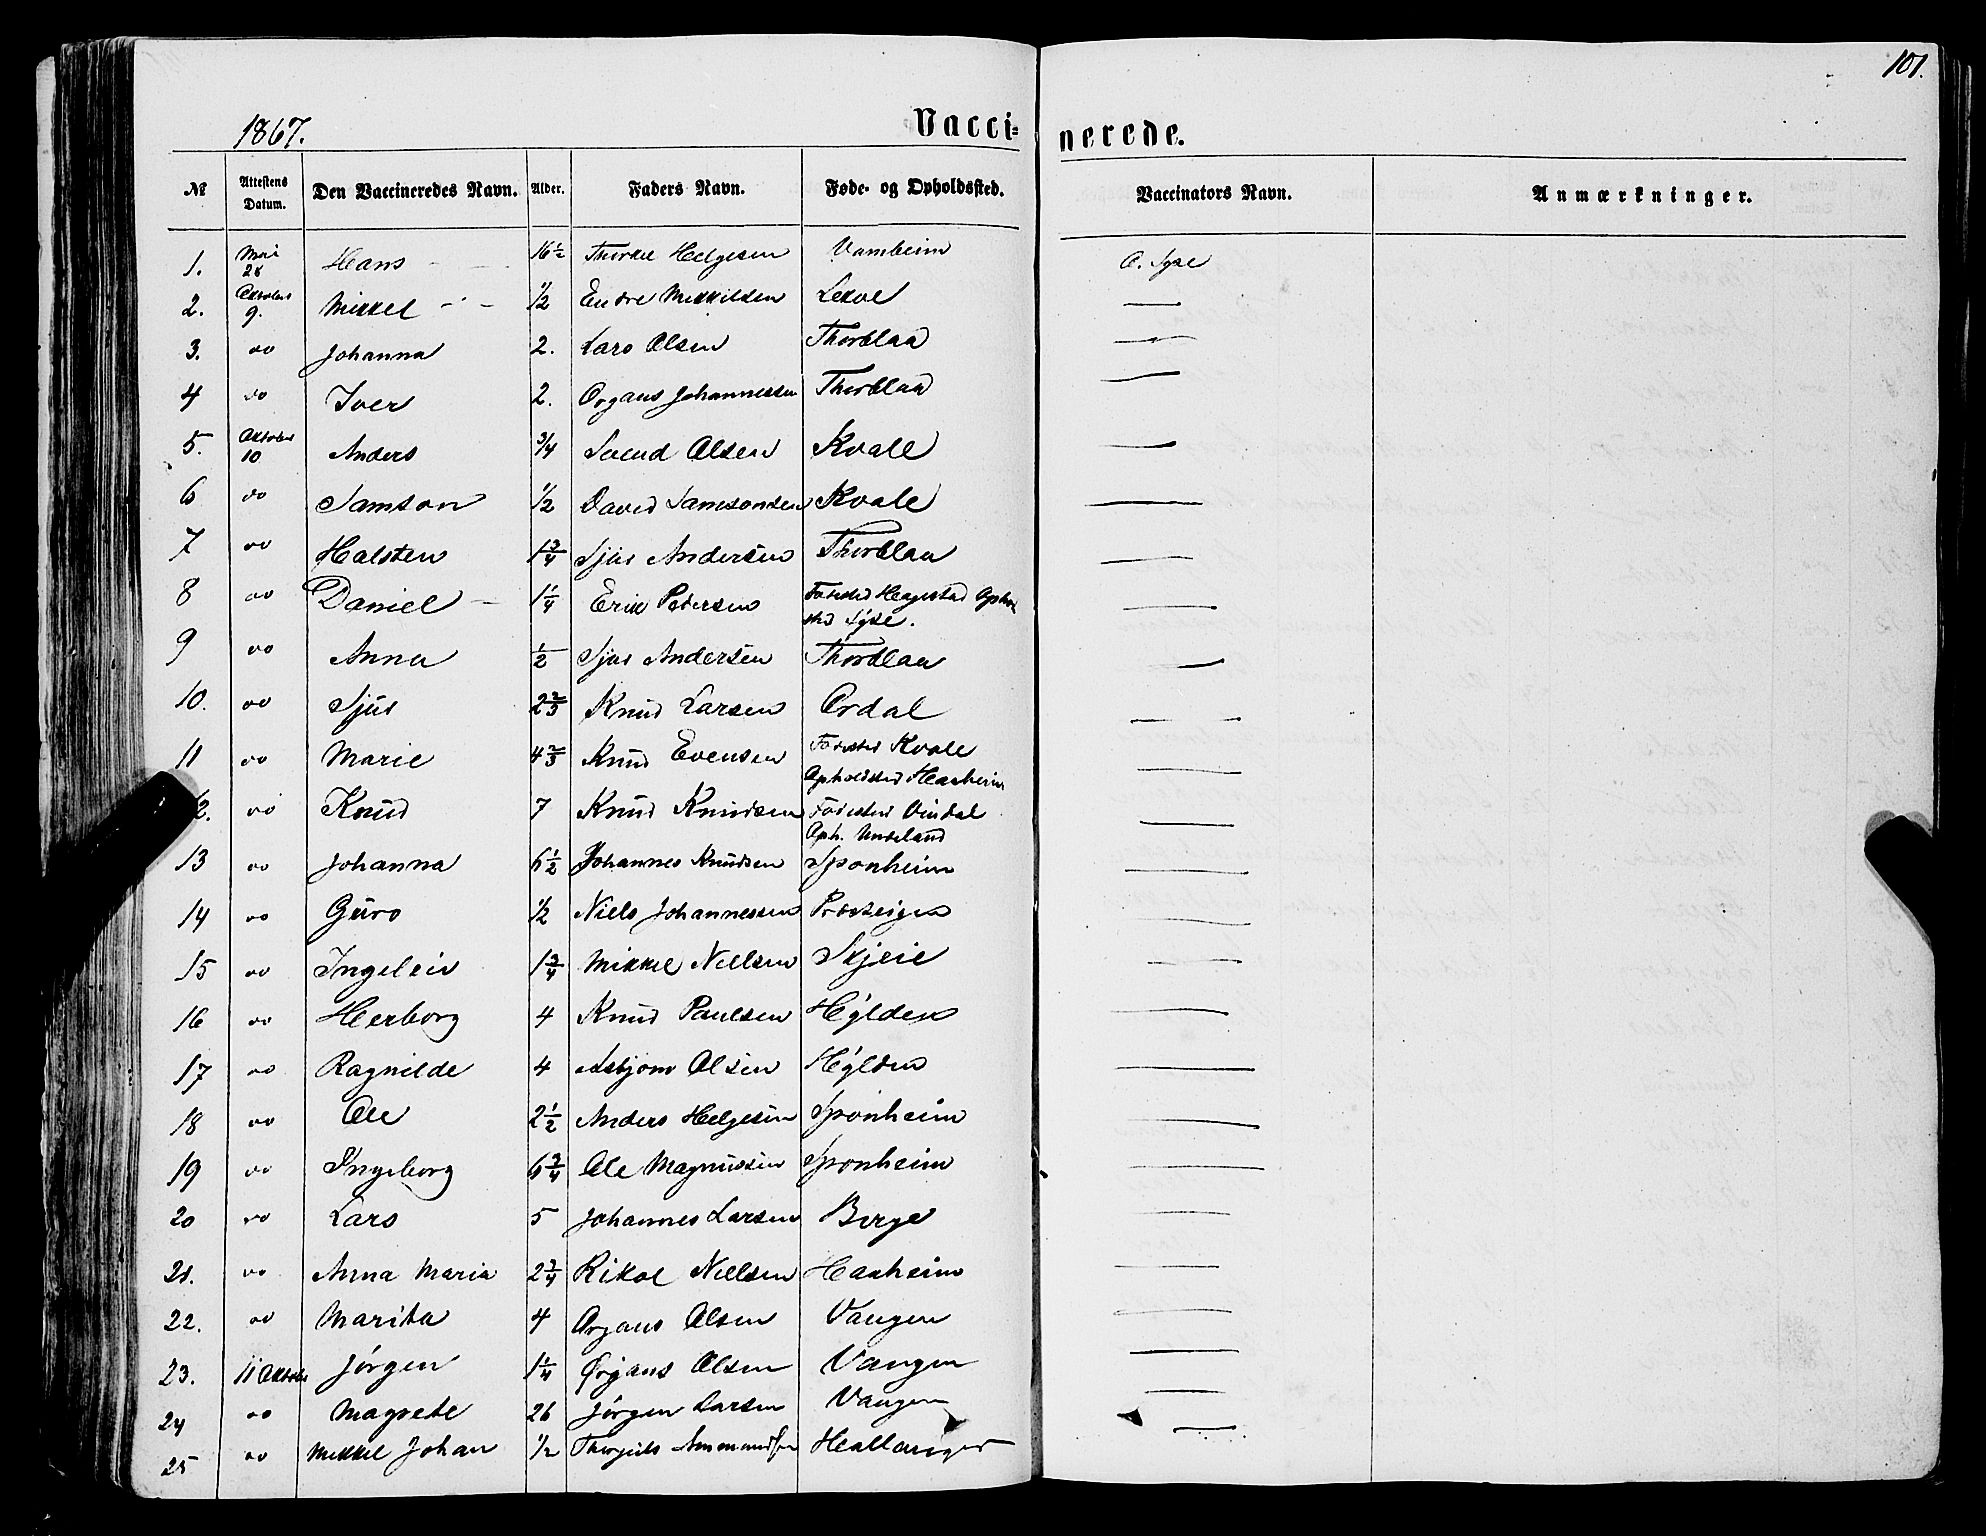 101.
1867. Vacci= nerede.
№ Attestens Datum. Den Vaccineredes Navn. Alder. Faders Navn. Føde- og Opholdssted. Vaccinators Navn. Anmærkninger.
1. Mai 28 Hans 16 1/2 Thorkel Helgesen Vambeim O. Syse
2. Oktober 9. Mikkel 1/2 Endre Mikkilsen Lekve —
3. do Johanna 2. Lars Olsen Thorblaa —
4 do Iver 2. Organs Johannessen Thorblaa —
5. Oktober 10 Anders 3/4 Svend Olsen Kvale —
6 do Samson 1/2 David Samsonsen Kvale —
7 do Halsten 1 3/4 Sjus Andersen Thorblaa —
8 do Daniel 1 1/4 Erik Pedersen Fødested Hagestad Ophol
sted Syse. —
9 do Anna 1/2 Sjus Andersen Thorblaa —
10. do Sjus 2 2/3 Knud Larsen Ordal —
11 do Marie 4 2/3 Knud Evensen Fødested Kvale
Opholdsted Haaheim —
12. do Knud 7 Knud Knudsen Fødested Vindal
Oph. Undeland —
13 do Johanna 6 1/2 Johannes Knudsen Sponheim —
14 do Guro 1/2 Niels Johannessen Prosteigen —
15 do Ingeleiv 1 3/4 Mikkel Nielsen Skjeie —
16 do Herborg 4 Knud Paulsen Hylden —
17 do Ragnilde 4 Asbjørn Olsen Hylden —
18 do Ole 2 1/2 Anders Helgesen Sponheim —
19 do Ingeborg 6 3/4 Ole Magnussen Sponheim —
20 do Lars 5 Johannes Larsen Berge —
21. do Anna Maria 2 3/4 Rikol Nielsen Haaheim —
22. do Marita 4 Organs Olsen Vangen —
23. 11 Oktober Jørgen 1 1/4 Ørjans Olsen Vangen —
24 do Magrete 26 Jørgen Larsen Vangen —
25 do Mikkel Johan 1/2 Thorgils Ammundsen Hallanger —